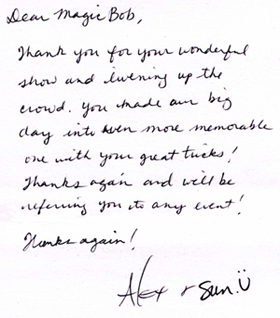 Dear Magic Bob,
Thank you for your wonderful
show and livening up the
crowd. You made our big
day into even more memorable
one with your great tricks!
Thanks again and will be
referring you to any event!
Thanks again!
Alex & Sun. Ü